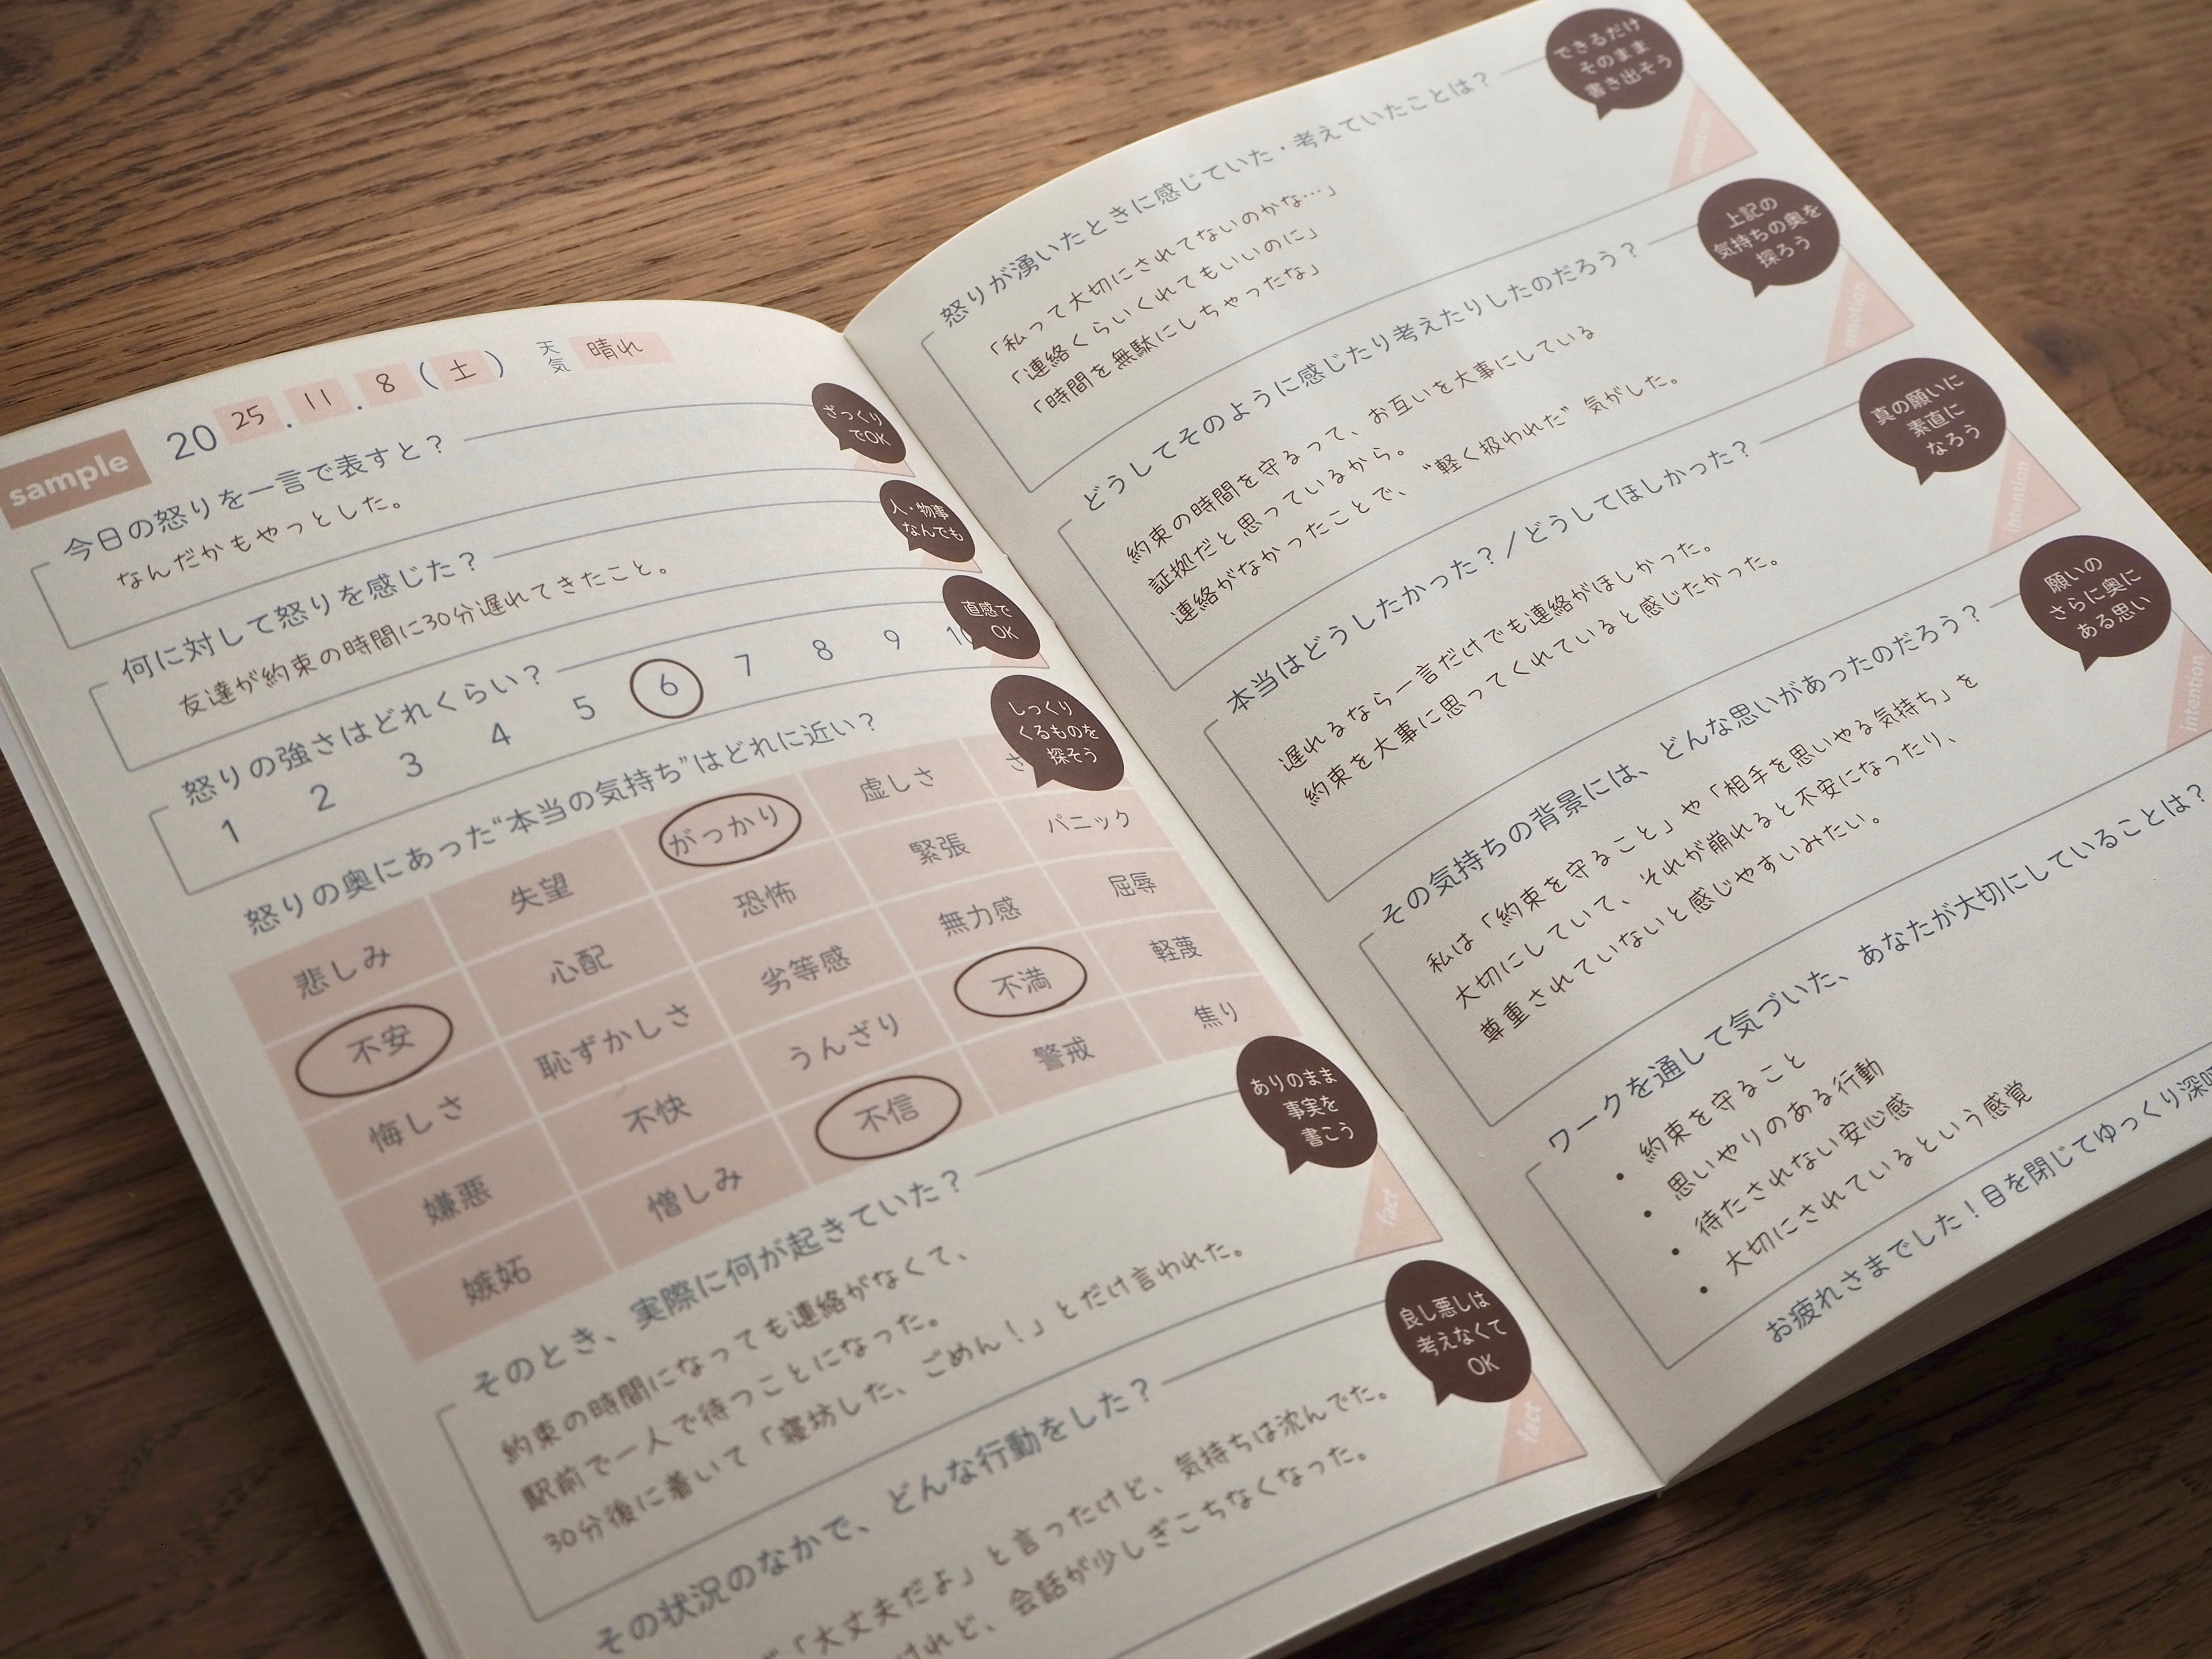 sample
2025.11.8(土) 天気 晴れ
今日の怒りを一言で表すと?
ざっくり
でOK
なんだかもやっとした。
何に対して怒りを感じた?
人・物事
なんでも
友達が約束の時間に30分遅れてきたこと。
怒りの強さはどれくらい?
直感で
OK
1 2 3 4 5 6 7 8 9 10
怒りの奥にあった“本当の気持ち”はどれに近い?
しっくり
くるものを
探そう
悲しみ 失望 がっかり 虚しさ
不安 心配 恐怖 緊張 パニック
悔しさ 恥ずかしさ 劣等感 無力感 屈辱
嫌悪 不快 うんざり 不満 軽蔑
嫉妬 憎しみ 不信 警戒 焦り
そのとき、実際に何が起きていた?
ありのまま
事実を
書こう
fact
約束の時間になっても連絡がなくて、
駅前で一人で待つことになった。
30分後に着いて「寝坊した、ごめん!」とだけ言われた。
その状況のなかで、どんな行動をした?
良し悪しは
考えなくて
OK
fact
「大丈夫だよ」と言ったけど、気持ちは沈んでた。
けれど、会話が少しぎこちなくなった。
怒りが湧いたときに感じていた・考えていたことは?
できるだけ
そのまま
書き出そう
emotion
「私って大切にされてないのかな…」
「連絡くらいくれてもいいのに」
「時間を無駄にしちゃったな」
どうしてそのように感じたり考えたりしたのだろう?
上記の
気持ちの奥を
探ろう
emotion
約束の時間を守るって、お互いを大事にしている
証拠だと思っているから。
連絡がなかったことで、“軽く扱われた”気がした。
本当はどうしたかった?/どうしてほしかった?
真の願いに
素直に
なろう
intention
遅れるなら一言だけでも連絡がほしかった。
約束を大事に思ってくれていると感じたかった。
その気持ちの背景には、どんな思いがあったのだろう?
願いの
さらに奥に
ある思い
intention
私は「約束を守ること」や「相手を思いやる気持ち」を
大切にしていて、それが崩れると不安になったり、
尊重されていないと感じやすいみたい。
ワークを通して気づいた、あなたが大切にしていることは?
• 約束を守ること
• 思いやりのある行動
• 待たされない安心感
• 大切にされているという感覚
お疲れさまでした!目を閉じてゆっくり深呼